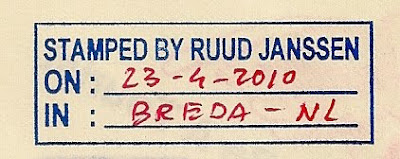 STAMPED BY RUUD JANSSEN
ON : 23-4-2010
IN : BREDA - NL